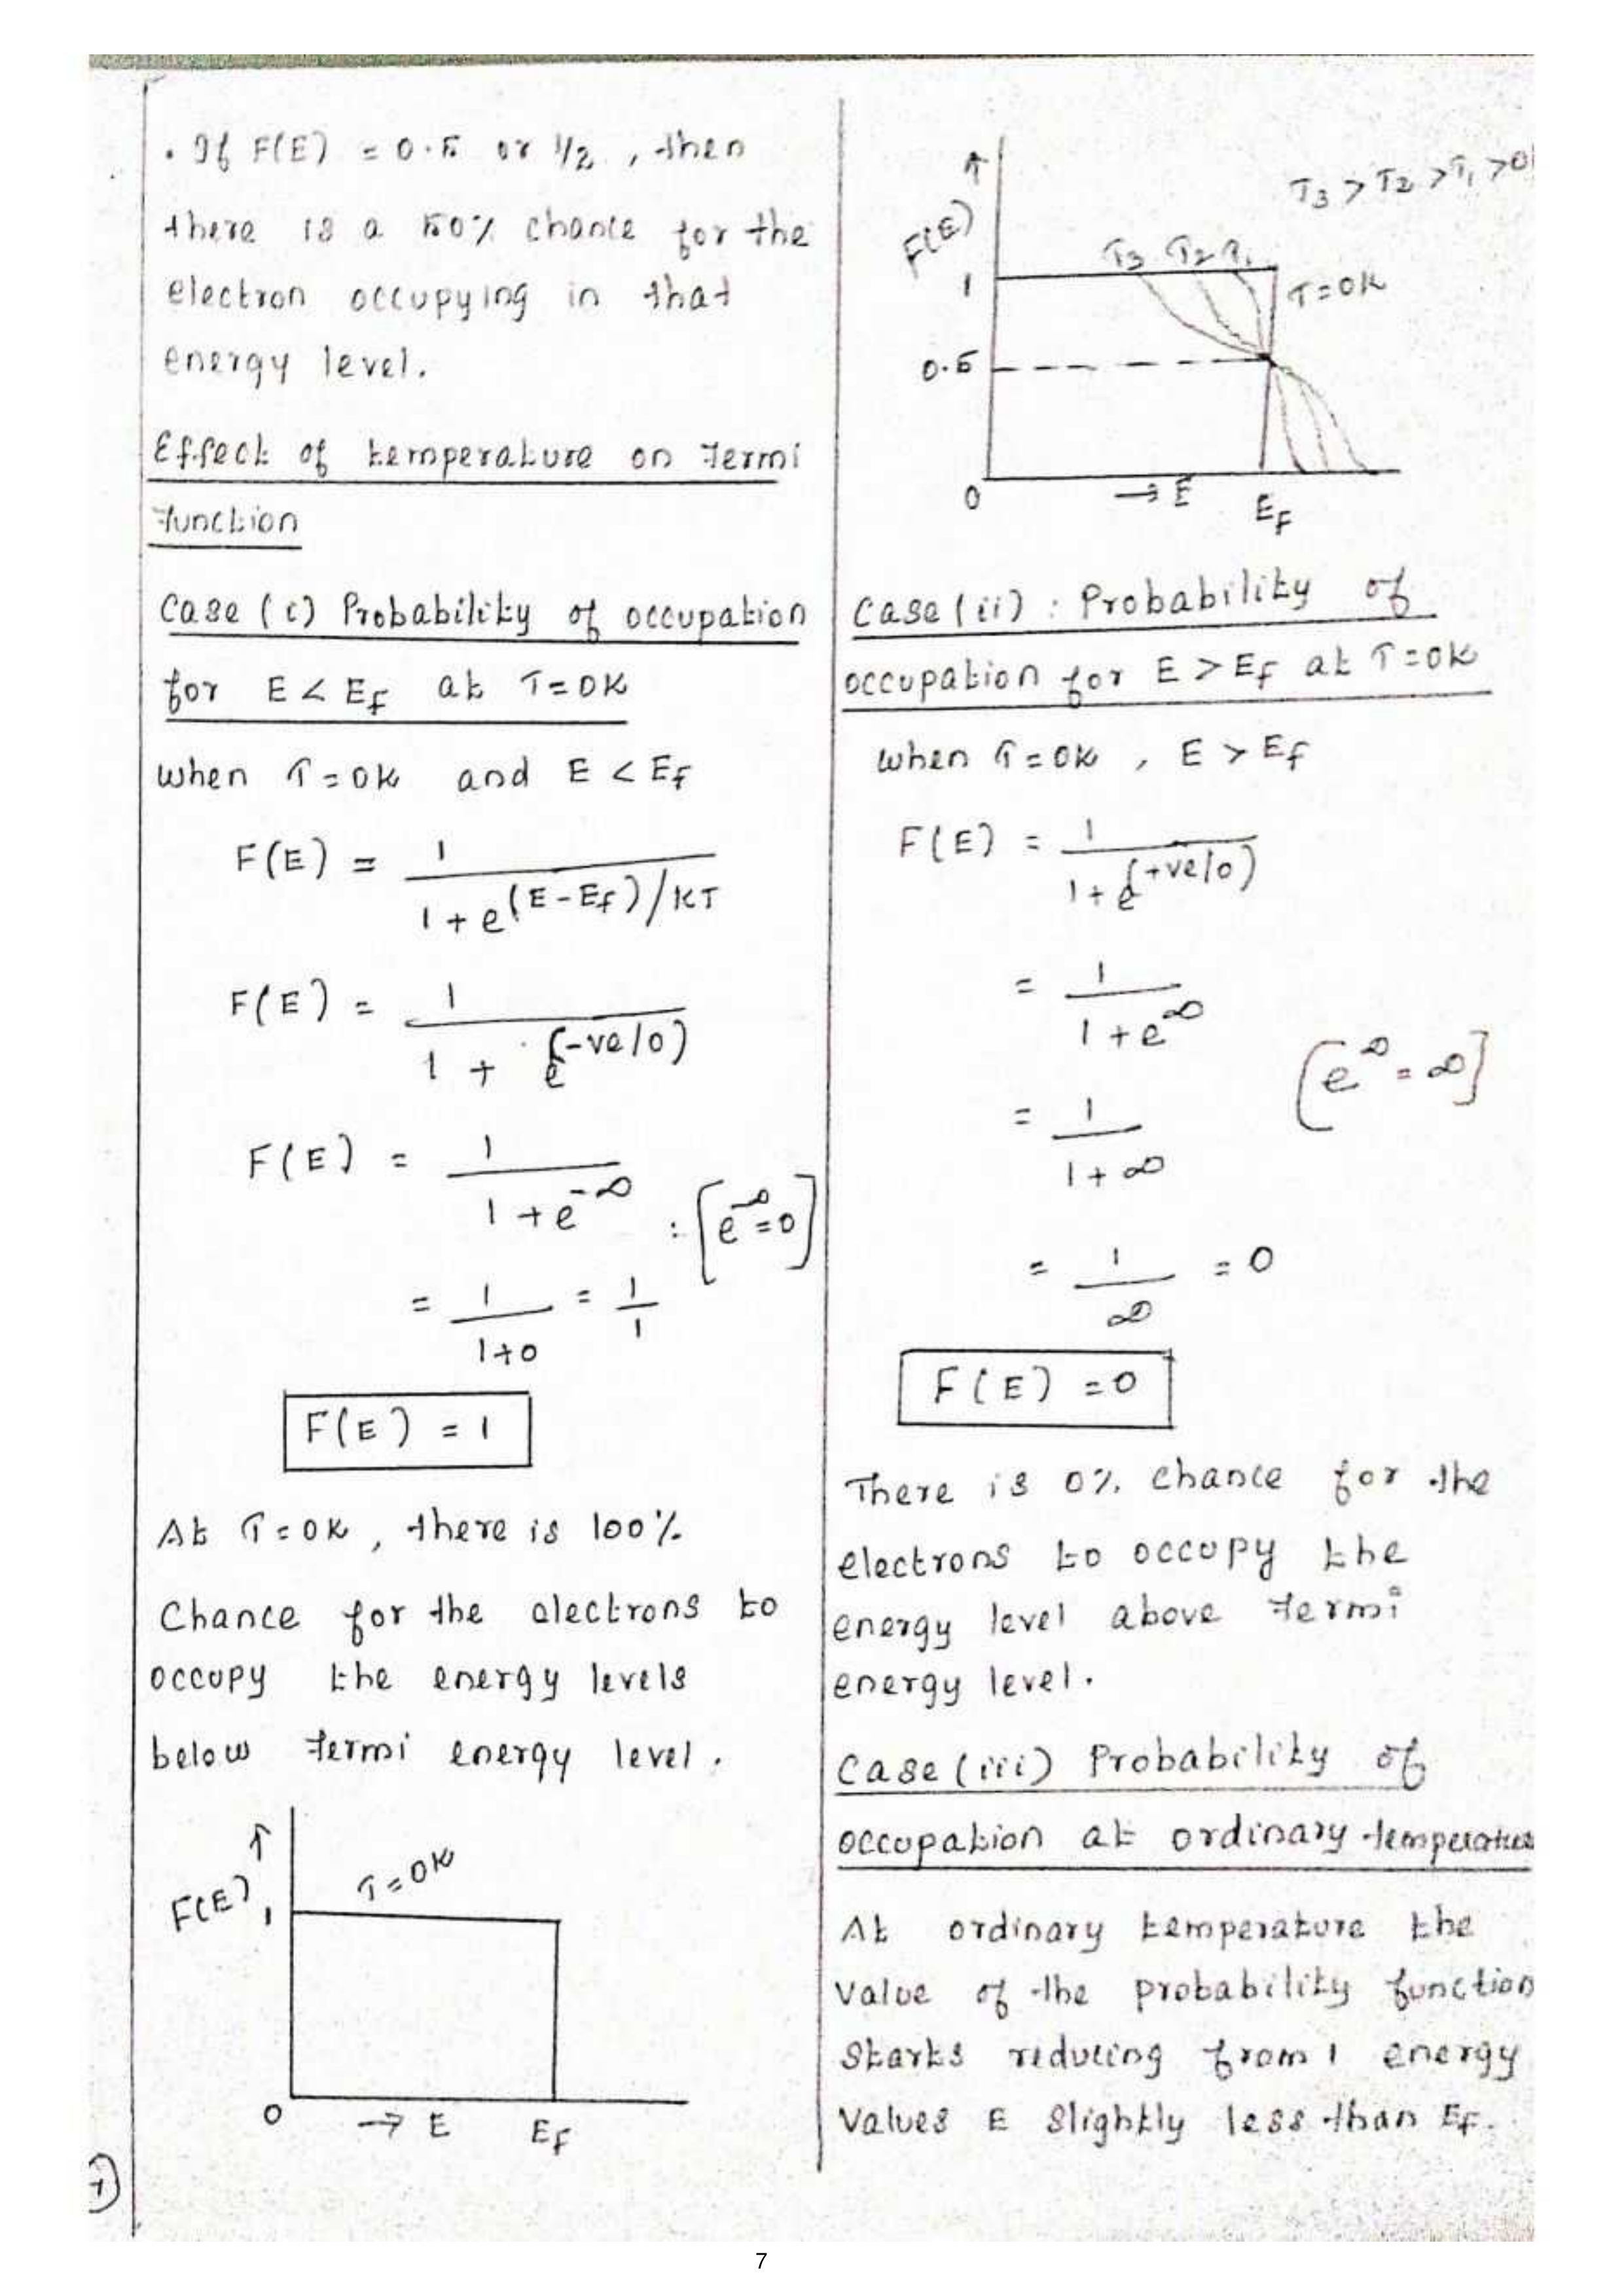 . If F(E) = 0.5 or 1/2 , then
there is a 50% chance for the
electron occupying in that
energy level.
Effect of temperature on Fermi
Function
Case (i) Probability of occupation
for E < EF at T=0K
when T=0K and E < EF
F(E) = 1 / 1+e^(E-EF)/KT
F(E) = 1 / 1 + e^(-ve/0)
F(E) = 1 / 1+e^-∞ : [e^-∞=0]
= 1 / 1+0 = 1/1
F(E) = 1
At T=0K , there is 100%
Chance for the electrons to
occupy the energy levels
below Fermi energy level.
↑
F(E)
1
T=0K
0 → E EF
7
↑
F(E)
T3 > T2 > T1 > 0
T3 T2 T1
1
T=0K
0.5
0 → E EF
Case (ii) : Probability of
occupation for E > EF at T=0K
when T=0K , E > EF
F(E) = 1 / 1+e^(+ve/0)
= 1 / 1+e^∞
[e^∞ = ∞]
= 1 / 1+∞
= 1 / ∞ = 0
F(E) = 0
There is 0% chance for the
electrons to occupy the
energy level above Fermi
energy level.
Case (iii) Probability of
occupation at ordinary temperature
At ordinary temperature the
value of the probability function
starts reducing from 1 energy
values E slightly less than EF.
7